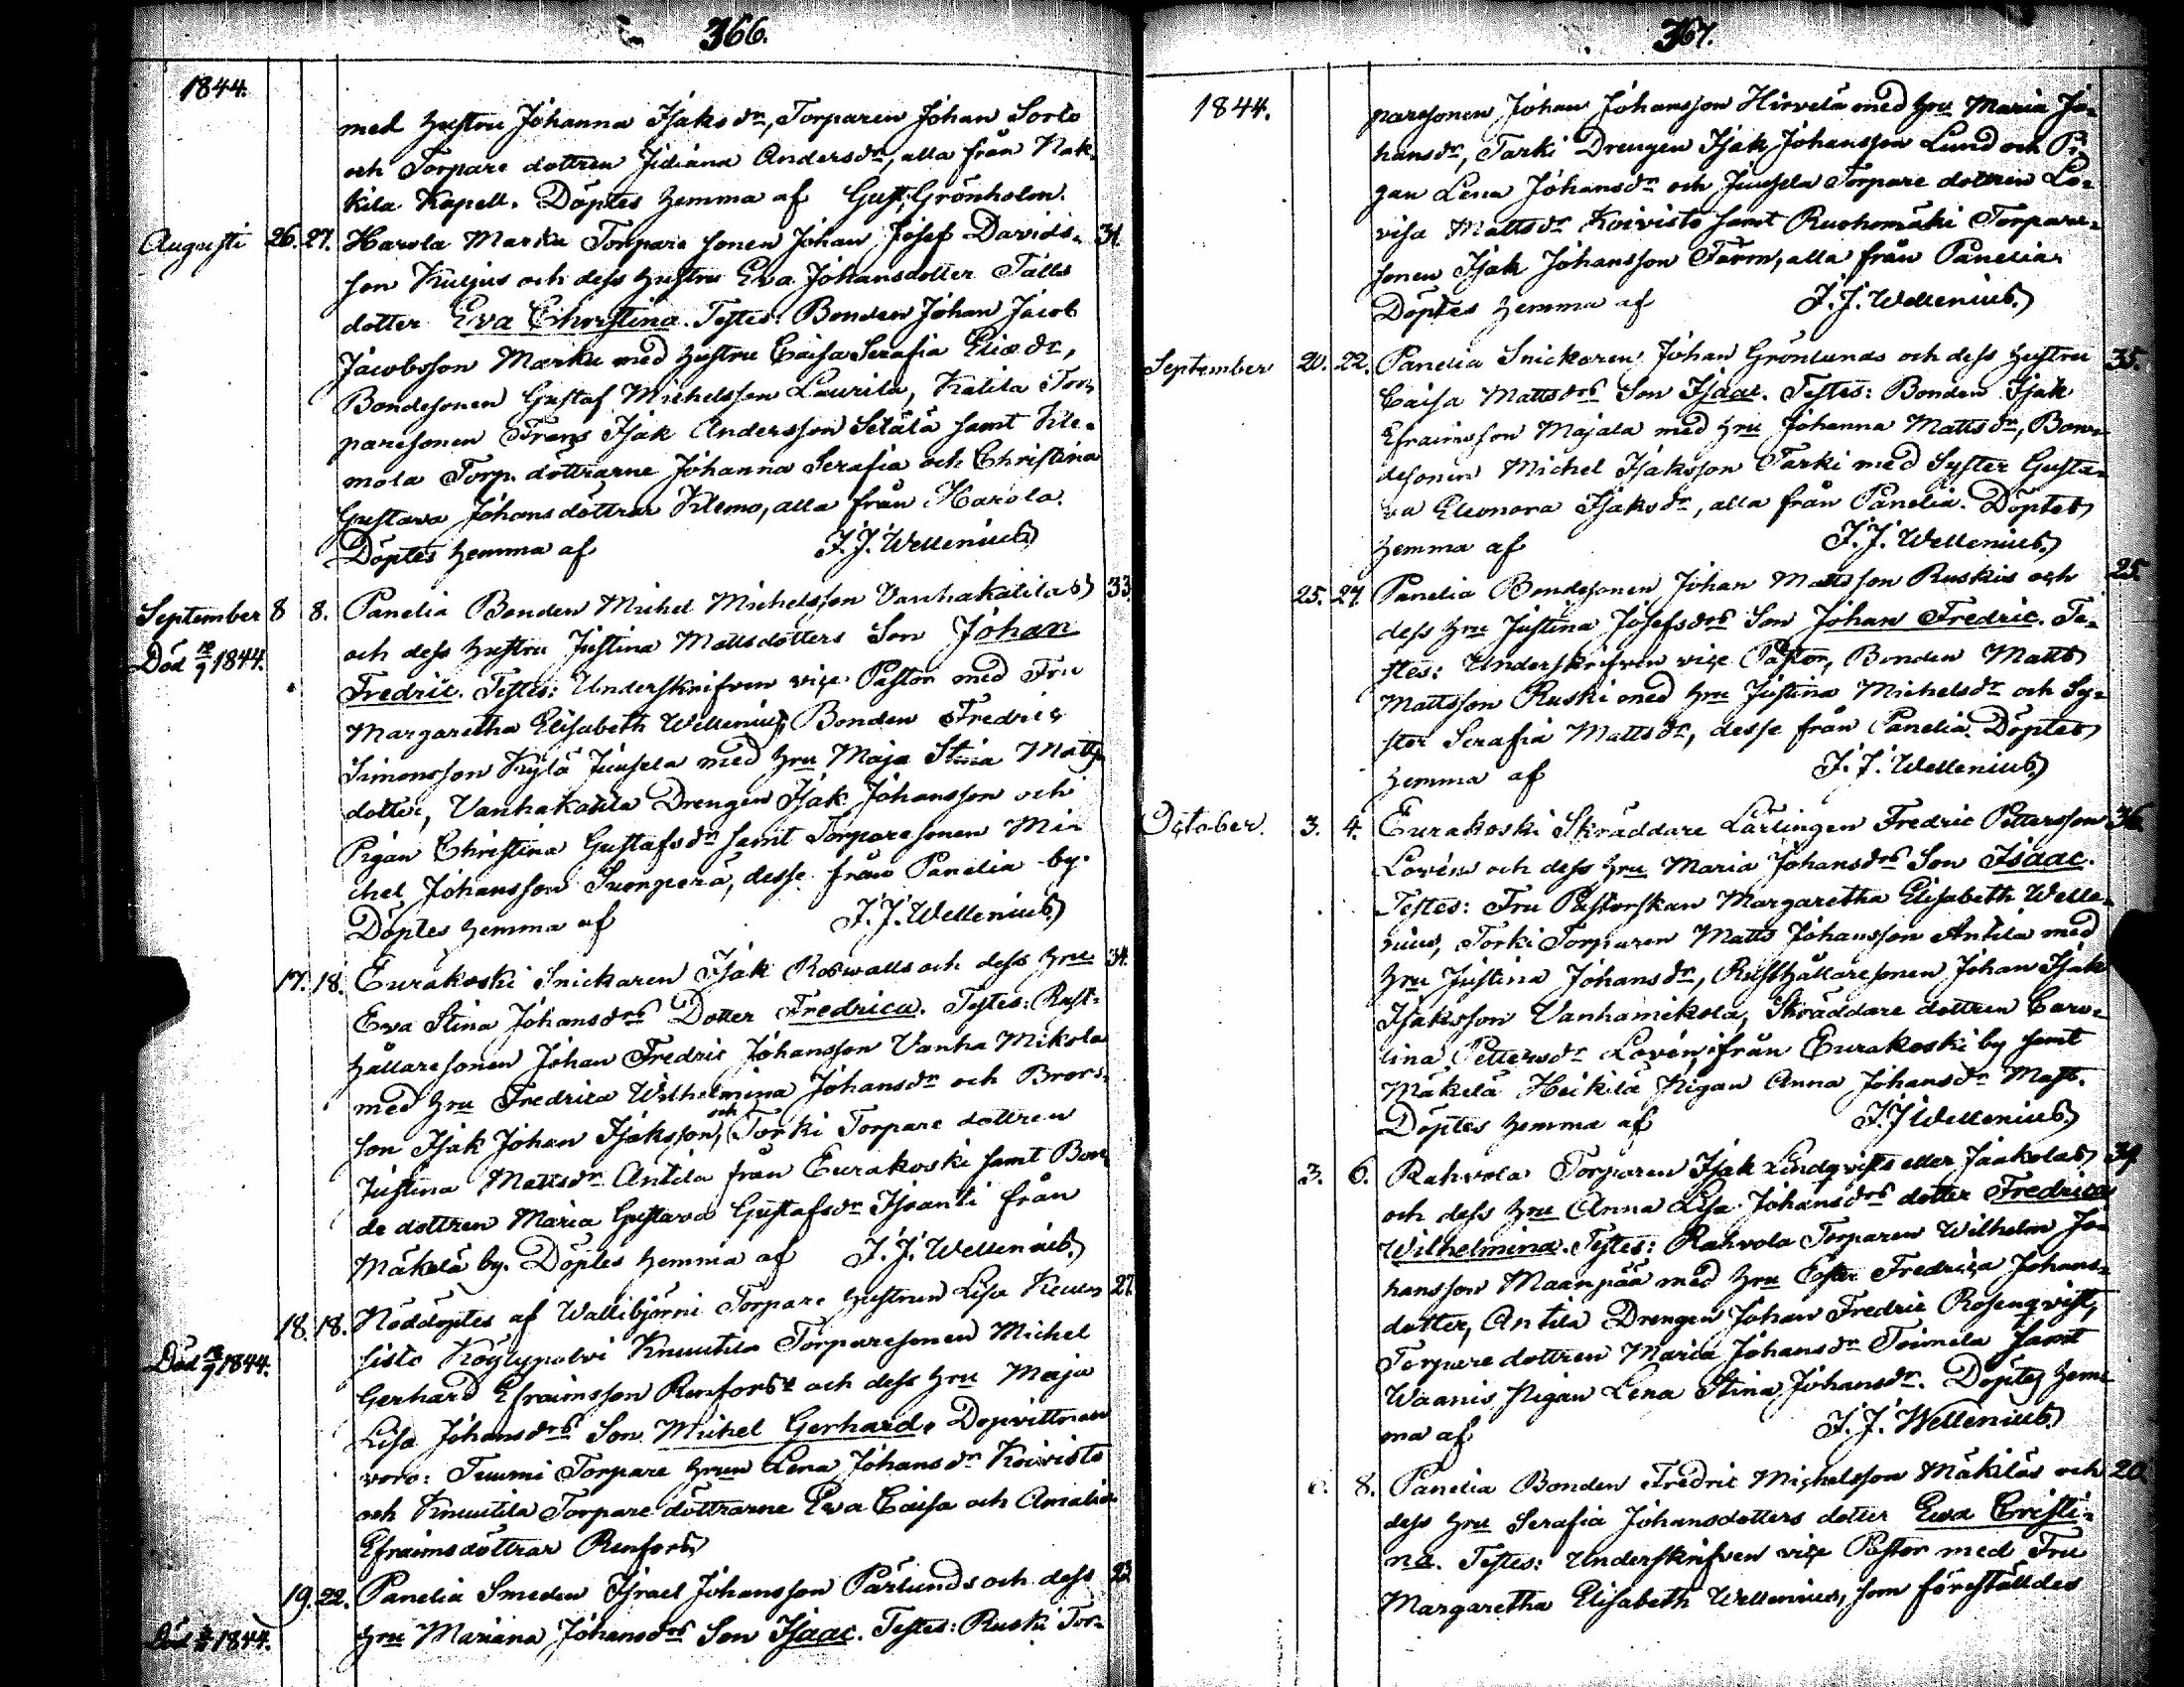 366.
1844.
med hustru Johanna Isaks dr, Torparen Johan Sorto
och Torpare dottren Juliana Andersdr, alla från Nak-
kila Kapell. Döptes hemma af Gust. Grönholm.
Augusti 26. 27. Harola Marku Torpare sonen Johan Josef Davids- 31.
son Kuljus och dess hustru Eva Johansdotter Tälls
dotter Eva Christina. Testes: Bonden Johan Jacob
Jacobsson Marku med hustru Caisa Serafia Eliædr,
Bondesonen Gustaf Michelsson Laurila, Katila Tor-
paresonen Frans Isak Andersson Setälä samt Kle-
mola Torp. döttrarne Johanna Serafia och Christina
Gustava Johansdöttrar Klemo, alla från Harola.
Döptes hemma af J. J. Wellenius.
September 8 8. Panelia Bonden Michel Michelsson Vanhakatilas 33.
Död 12/9 1844. och dess hustru Justina Mattsdotters Son Johan
Fredric. Testes: Underskrifven vice Pastor med Fru
Margaretha Elisabeth Wellenius, Bonden Fredric
Simonsson Kylä Juusela med hru Maja Stina Matts-
dotter, Vanhakatila Drengen Isak Johansson och
Pigan Christina Gustafsdr samt Torparesonen Mi-
chel Johansson Suonperä, desse från Panelia by.
Döptes hemma af J. J. Wellenius.
17. 18. Eurakoski Snickaren Isak Roswalls och dess hru 34.
Ewa Stina Johansdrs Dotter Fredrica. Testes: Rust-
hållaresonen Johan Fredric Johansson Vanha Mikola
med hru Fredrica Wilhelmina Johansdr och Brors-
son Isak Johan Isaksson, och Torki Torpare dottren
Justina Mattsdr Antila från Eurakoski samt Bon-
de dottren Maria Gustava Gustafsdr Isoanti från
Mäkelä by. Döptes hemma af J. J. Wellenius.
18. 18. Nöddöptes af Wallibjörni Torpare hustrun Lisa Keuen- 27.
Död 18/9 1844. sisto Köylypolvi Knuutila Torparesonen Michel
Gerhard Efraimsson Renfors's och dess hru Maja
Lisa Johansdrs Son Michel Gerhard. Dopvittnen
voro: Tuumi Torpare hrun Lena Johansdr Koivisto
och Knuutila Torpare döttrarne Eva Caisa och Amalia
Efraimsdöttrar Renfors.
19. 22. Panelia Smeden Israel Johansson Pärlunds och dess 23.
Död 1844. hru Mariana Johansdrs Son Isaac. Testes: Ruski Tor-
367.
1844.
paresonen Johan Johansson Hirvelä med hru Maria Jo-
hansdr, Tarki Drengen Isak Johansson Lund och Pi-
gan Lena Johansdr och Juusela Torpare dottren Lo-
visa Mattsdr Koivisto samt Ruohomäki Torpare-
sonen Isak Johansson Färm, alla från Panelia.
Döptes hemma af J. J. Wellenius.
September 20. 22. Panelia Snickaren Johan Grönlunds och dess hustru 35.
Caisa Mattsdrs Son Isaac. Testes: Bonden Isak
Efraimsson Majala med hru Johanna Mattsdr, Bon-
desonen Michel Isaksson Tarki med Syster Gusta-
va Eleonora Isaksdr, alla från Panelia. Döptes
hemma af J. J. Wellenius.
25. 27. Panelia Bondesonen Johan Mattsson Ruskis och 25.
dess hru Justina Josefsdrs Son Johan Fredric. Te-
stes: Underskrifven vice Pastor, Bonden Matts
Mattsson Ruski med hru Justina Michelsdr och Sy-
ster Serafia Mattsdr, desse från Panelia. Döptes
hemma af J. J. Wellenius.
October. 3. 4. Eurakoski Skräddare Lärlingen Fredric Pettersson 36.
Lovéns och dess hru Maria Johansdrs Son Isaac.
Testes: Fru Pastorskan Margaretha Elisabeth Welle-
nius, Torki Torparen Matts Johansson Antila med
hru Justina Johansdr, Rusthållaresonen Johan Isak
Isaksson Vanhamikola, Skräddare dottren Caro-
lina Pettersdr Lovén, från Eurakoski by samt
Mäkelä Heikilä Pigan Anna Johansdr Matts.
Döptes hemma af J. J. Wellenius.
3. 6. Rahvola Torparen Isak Lindqvists eller Jaakolas 39.
och dess hru Anna Lisa Johansdrs dotter Fredrica
Wilhelmina. Testes: Rahvola Torparen Wilhelm Jo-
hansson Maanpää med hru Ester Fredrica Johans-
dotter, Antila Drengen Johan Fredric Rosenqvist,
Torpare dottren Maria Johansdr Toimela samt
Waanis Pigan Lena Stina Johansdr. Döptes hem-
ma af J. J. Wellenius.
6. 8. Panelia Bonden Fredric Michelsson Mäkiläs och 20.
dess hru Serafia Johansdotters dotter Ewa Christi-
na. Testes: Underskrifven vice Pastor med Fru
Margaretha Elisabeth Wellenius, som föreställdes